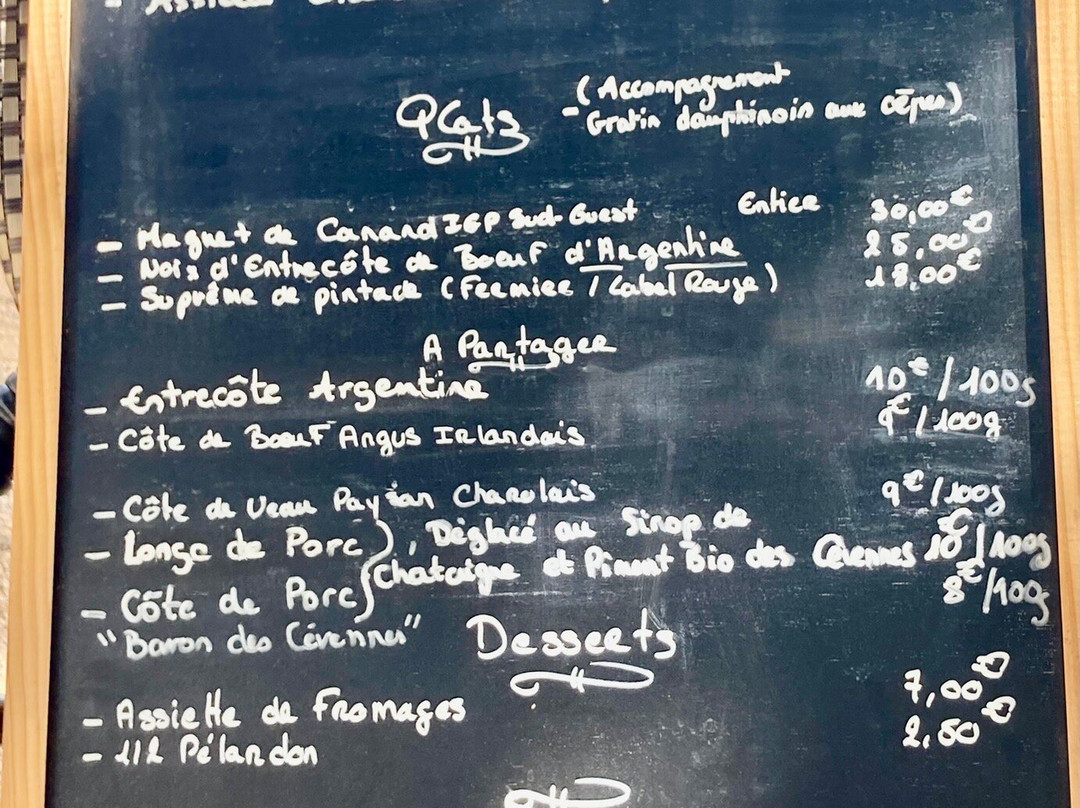 - Assiette
Plats
(Accompagnement
- Gratin dauphinois aux cèpes)
- Magret de Canard IGP Sud-Ouest Entier 30,00€
- Noix d'Entrecôte de Boeuf d'Argentine 25,00€
- Suprême de pintade (Fermier / Label Rouge) 18,00€
A Partager
- Entrecôte Argentine 10€/100g
- Côte de Boeuf Angus Irlandais 9€/100g
- Côte de Veau Paysan Charolais 9€/100g
- Longe de Porc ), Déglacé au Sirop de
Chataigne et Piment Bio des Cévennes 10€/100g
- Côte de Porc 8€/100g
"Baron des Cévennes"
Desserts
- Assiette de Fromages 7,00€
- 1/2 Pélardon 2,50€